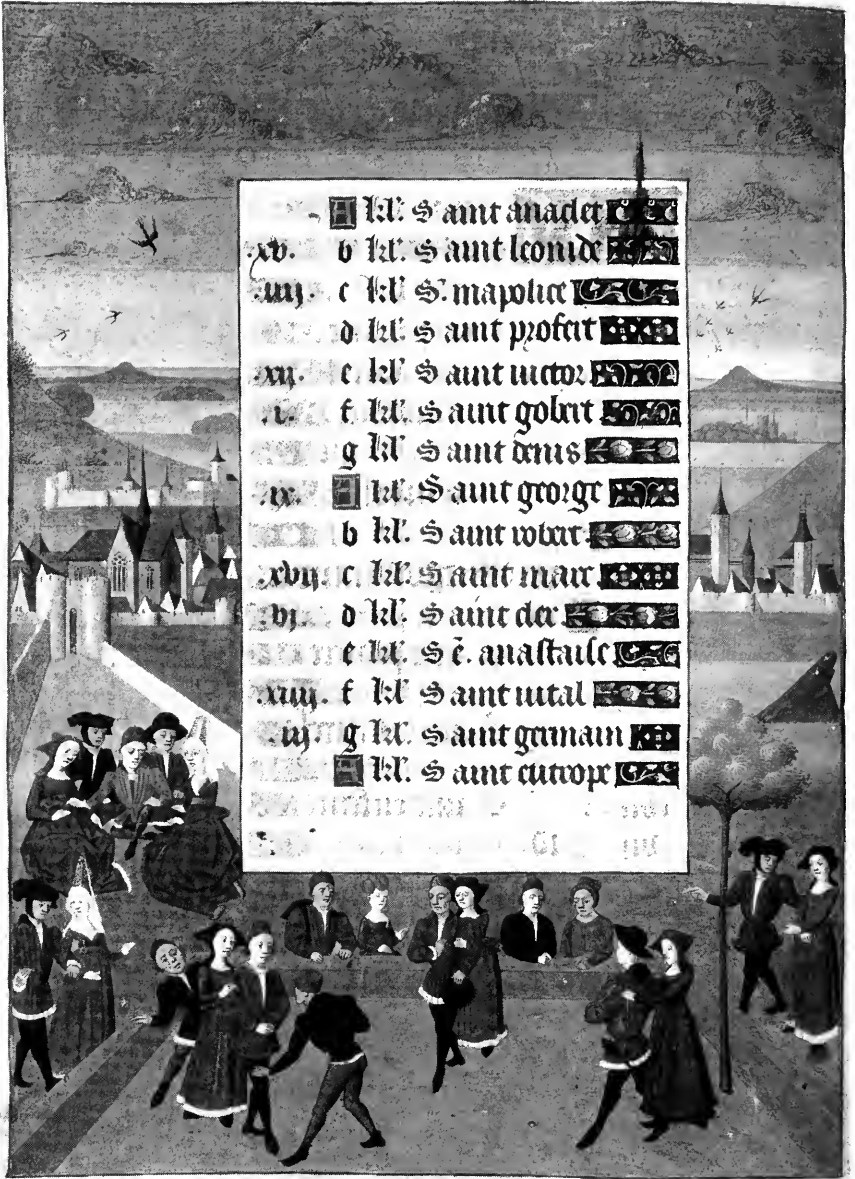 A kl'. Saint anaclet
.xv. b kl'. Saint leonide
.iiij. c kl' S'. mapolice
d. kl'. Saint profert
.xij. e. kl' Saint victor
.i. f. kl'. Saint gobert
g kl' Saint denis
.ix. A kl'. Saint george
b kl'. Saint robert
.xvij. c. kl'. Saint marc
.vi. d kl'. Saint cler
e kl'. S ē. anastaise
.xiiij. f kl' Saint vital
.iij. g. kl'. Saint germain
A kl'. Saint eutrope